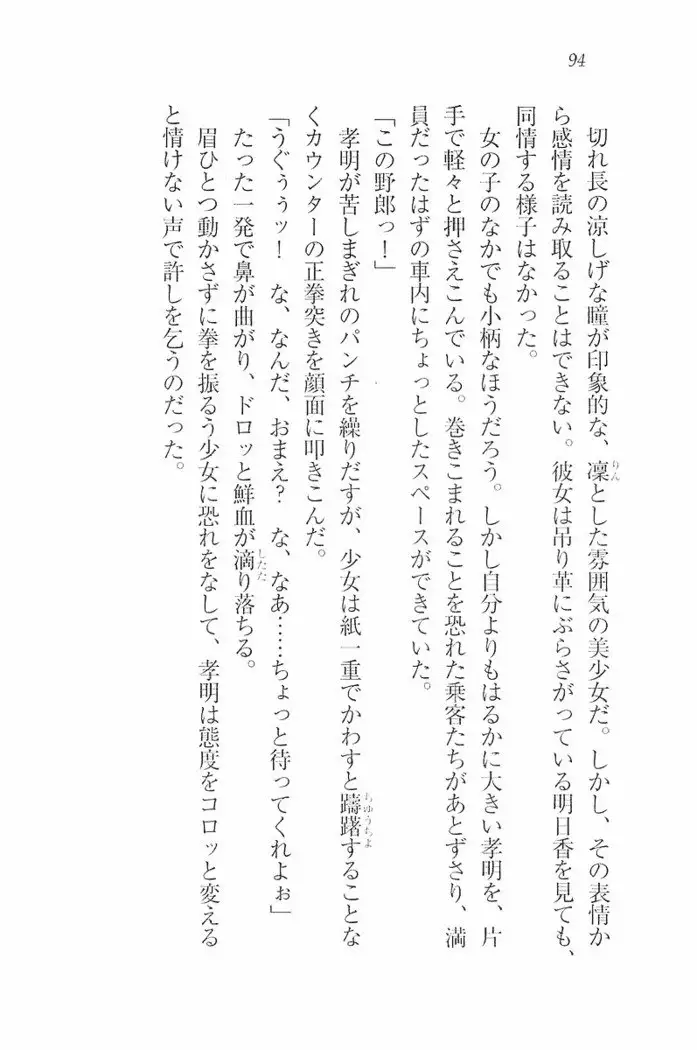 94
切れ長の涼しげな瞳が印象的な、凜とした雰囲気の美少女だ。しかし、その表情か
ら感情を読み取ることはできない。彼女は吊り革にぶらさがっている明日香を見ても、
同情する様子はなかった。
女の子のなかでも小柄なほうだろう。しかし自分よりもはるかに大きい孝明を、片
手で軽々と押さえこんでいる。巻きこまれることを恐れた乗客たちがあとずさり、満
員だったはずの車内にちょっとしたスペースができていた。
「この野郎っ！」
孝明が苦しまぎれのパンチを繰りだすが、少女は紙一重でかわすと躊躇することな
くカウンターの正拳突きを顔面に叩きこんだ。
「うぐぅぅッ！　な、なんだ、おまえ？　な、なあ……ちょっと待ってくれよぉ」
たった一発で鼻が曲がり、ドロッと鮮血が滴り落ちる。
眉ひとつ動かさずに拳を振るう少女に恐れをなして、孝明は態度をコロッと変える
と情けない声で許しを乞うのだった。
りん
ちゅうちょ
したた